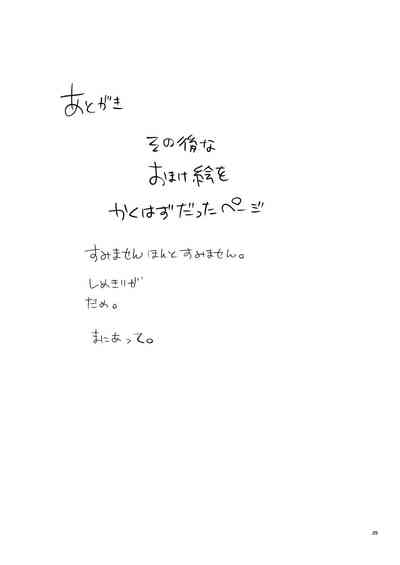 あとがき
その後な
おほけ絵を
かくはずだったページ
すみません ほんと すみません。
しめきりが
だめ。
まにあって。